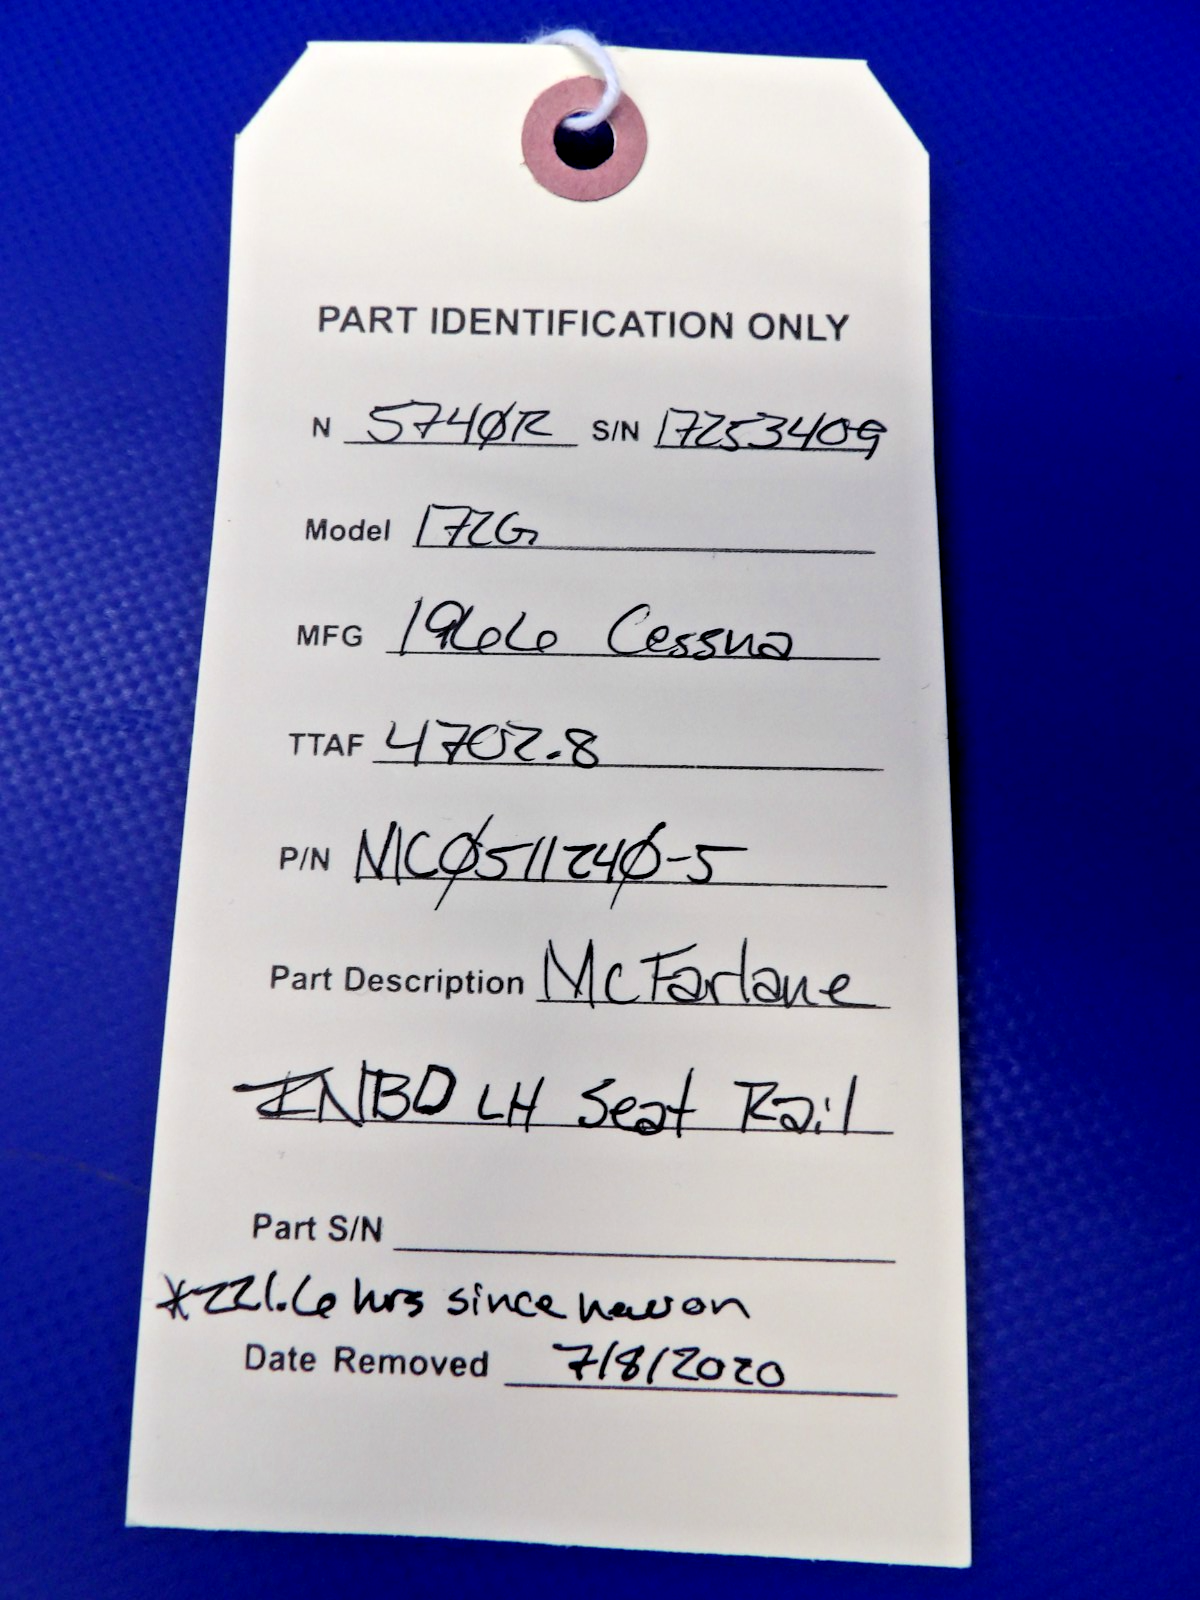 PART IDENTIFICATION ONLY
N 5740R S/N 17253409
Model 172G
MFG 1966 Cessna
TTAF 4702.8
P/N MC0511240-5
Part Description McFarlane
INBD LH Seat Rail
Part S/N
*221.6 hrs since new on
Date Removed 7/8/2020